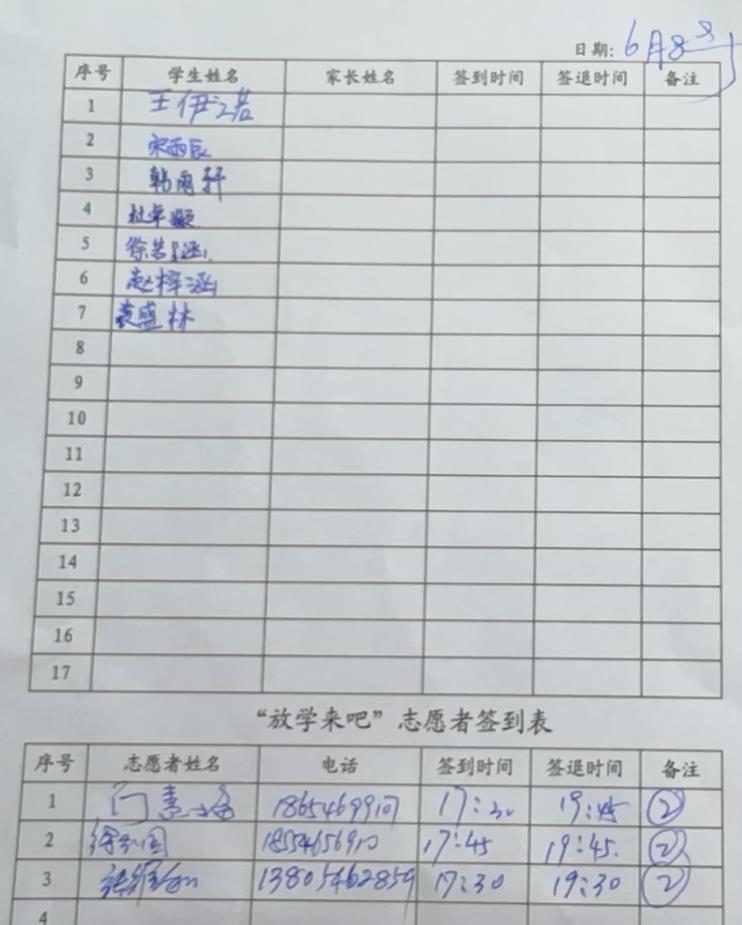 日期: 6月8日
序号 学生姓名 家长姓名 签到时间 签退时间 备注
1 王伊诺
2 宋雨辰
3 韩雨轩
4 杜卓灏
5 徐若涵
6 赵梓涵
7 袁盛林
8
9
10
11
12
13
14
15
16
17
“放学来吧”志愿者签到表
序号 志愿者姓名 电话 签到时间 签退时间 备注
1 门 18654699107 17:30 19:45 ②
2 17:45 19:45. ②
3 13805462859 17:30 19:30 ②
4